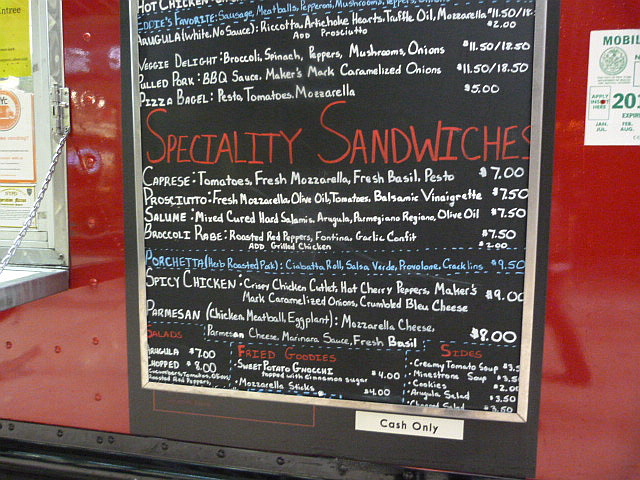 Hot Chicken
Eddie's Favorite: Sausage, Meatballs, Pepperoni, Mushrooms, Peppers, Onions
Arugula (White, No Sauce): Riccotta, Artichoke Hearts, Truffle Oil, Mozzarella $11.50/18.
Add Prosciutto $2.00
Veggie Delight: Broccoli, Spinach, Peppers, Mushrooms, Onions $11.50/18.50
Pulled Pork: BBQ Sauce, Maker's Mark Caramelized Onions $11.50/18.50
Pizza Bagel: Pesto, Tomatoes, Mozzarella $5.00
Speciality Sandwiches
Caprese: Tomatoes, Fresh Mozzarella, Fresh Basil, Pesto $7.00
Prosciutto: Fresh Mozzarella, Olive Oil, Tomatoes, Balsamic Vinaigrette $7.50
Salume: Mixed Cured Hard Salamis, Arugula, Parmegiano Regiano, Olive Oil $7.50
Broccoli Rabe: Roasted Red Peppers, Fontina, Garlic Confit $7.50
Add Grilled Chicken $2.00
Porchetta (Herb Roasted Pork): Ciabatta Roll, Salsa Verde, Provolone, Cracklins $9.50
Spicy Chicken: Crispy Chicken Cutlet, Hot Cherry Peppers, Maker's $9.00
Mark Caramelized Onions, Crumbled Bleu Cheese
Parmesan (Chicken, Meatball, Eggplant): Mozzarella Cheese,
Parmesan Cheese, Marinara Sauce, Fresh Basil $8.00
Salads
Arugula $7.00
Chopped $8.00
Cucumbers, Tomatoes, Olives,
Roasted Red Peppers,
Fried Goodies
Sweet Potato Gnocchi $4.00
topped with cinnamon sugar
Mozzarella Sticks $4.00
Sides
Creamy Tomato Soup $3.5
Minestrone Soup $3.5
Cookies $2.00
Arugula Salad $3.50
Chopped Salad $3.50
Cash Only
Entree
MOBIL
APPLY
INSP
HERE
201
EXPIRES
JAN. FEB.
JUL. AUG.